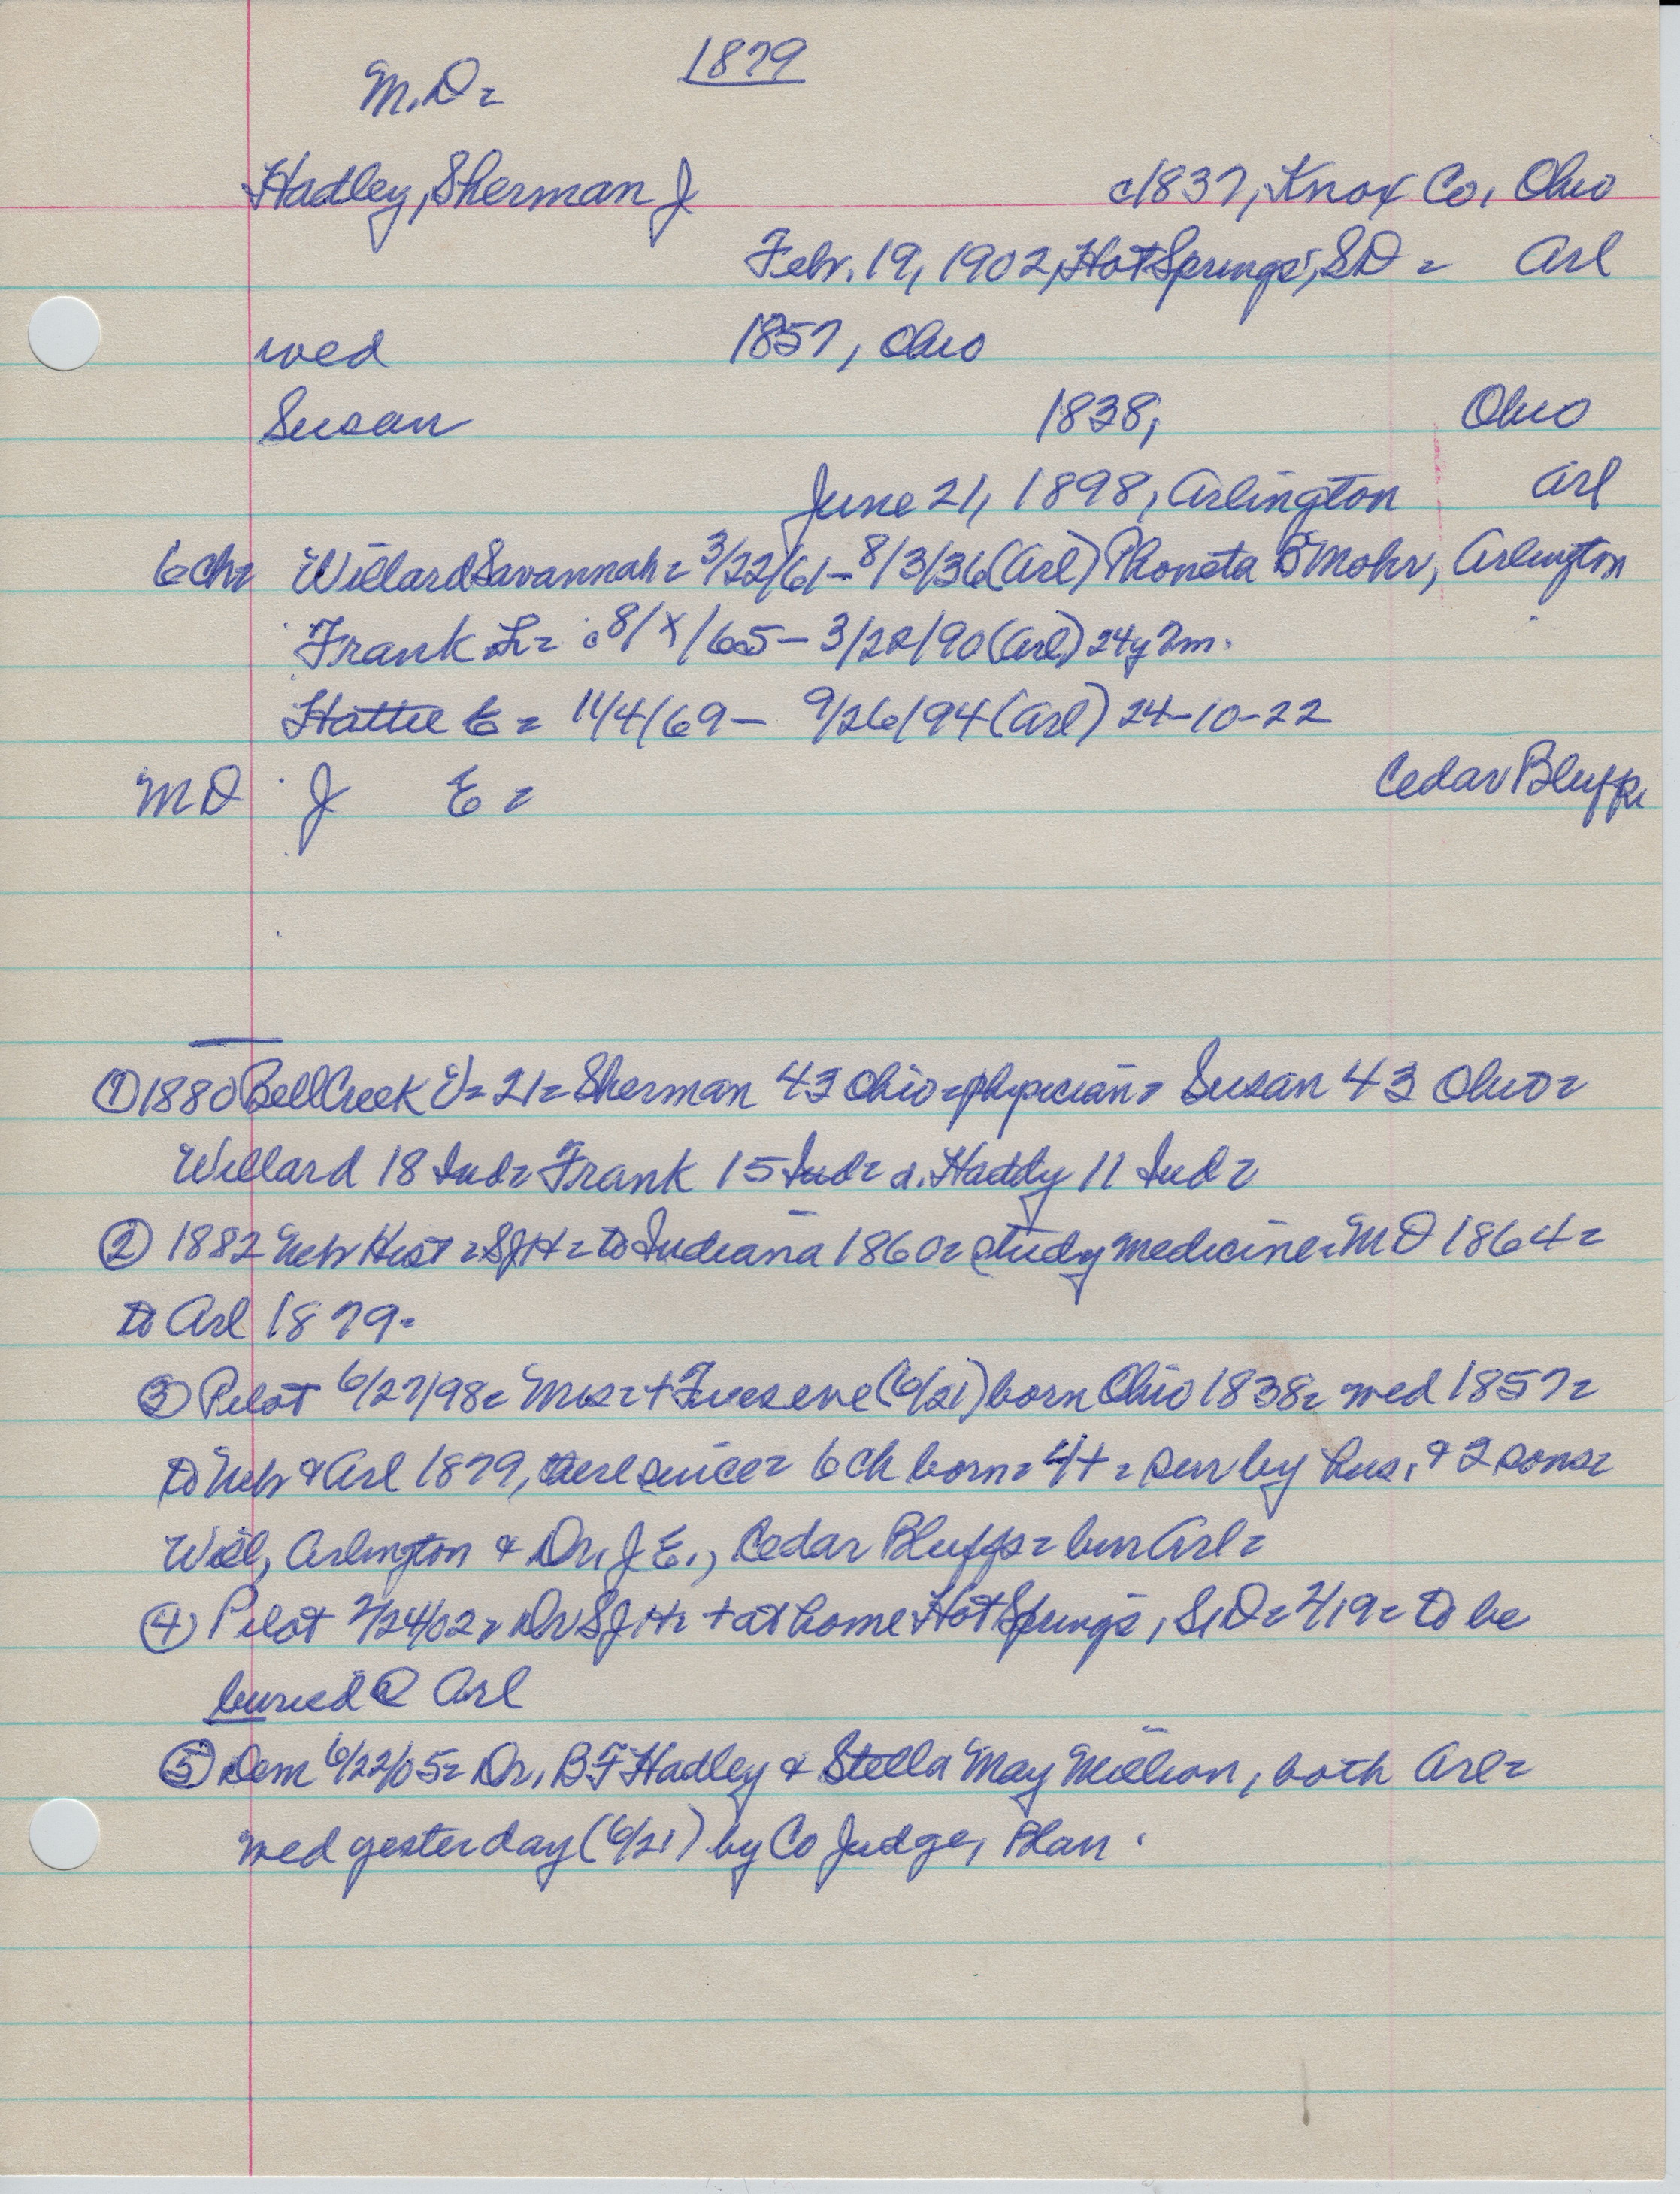 1879
M.D=
Hadley, Sherman J c1837, Knox Co, Ohio
Febr. 19, 1902, Hot Springs, SD = Arl
wed 1857, Ohio
Susan 1838, Ohio
June 21, 1898, Arlington Arl
6 ch= Willard Savannah = 3/22/61 - 8/3/36 (Arl) B Mohr, Arlington
Frank L= c8/x/65 - 3/28/90 (Arl) 24y 7m.
Hattie E = 11/4/69 - 9/26/94 (Arl) 24-10-22
MD J E = Cedar Bluffs
① 1880 Bell Creek = 21= Sherman 43 Ohio = physician = Susan 43 Ohio =
Willard 18 Ind= Frank 15 Ind= d. Haddy 11 Ind=
② 1882 Nebr Hist = SJH = to Indiana 1860= study medicine = MD 1864=
to Arl 1879=
③ Pilot 6/27/98= Mrs= + Tues eve (6/21) born Ohio 1838= wed 1857=
to Nebr & Arl 1879, since= 6 ch born= 4+ = sur by hus. & 2 sons=
Will, Arlington & Dr. J E., Cedar Bluffs= bur Arl=
④ Pilot 2/24/02= Dr SJH= + at home Hot Springs, S.D= 2/19= to be
buried @ Arl
⑤ Dem 6/22/05= Dr. B F Hadley & Stella May, both Arl=
wed yesterday (6/21) by Co Judge,